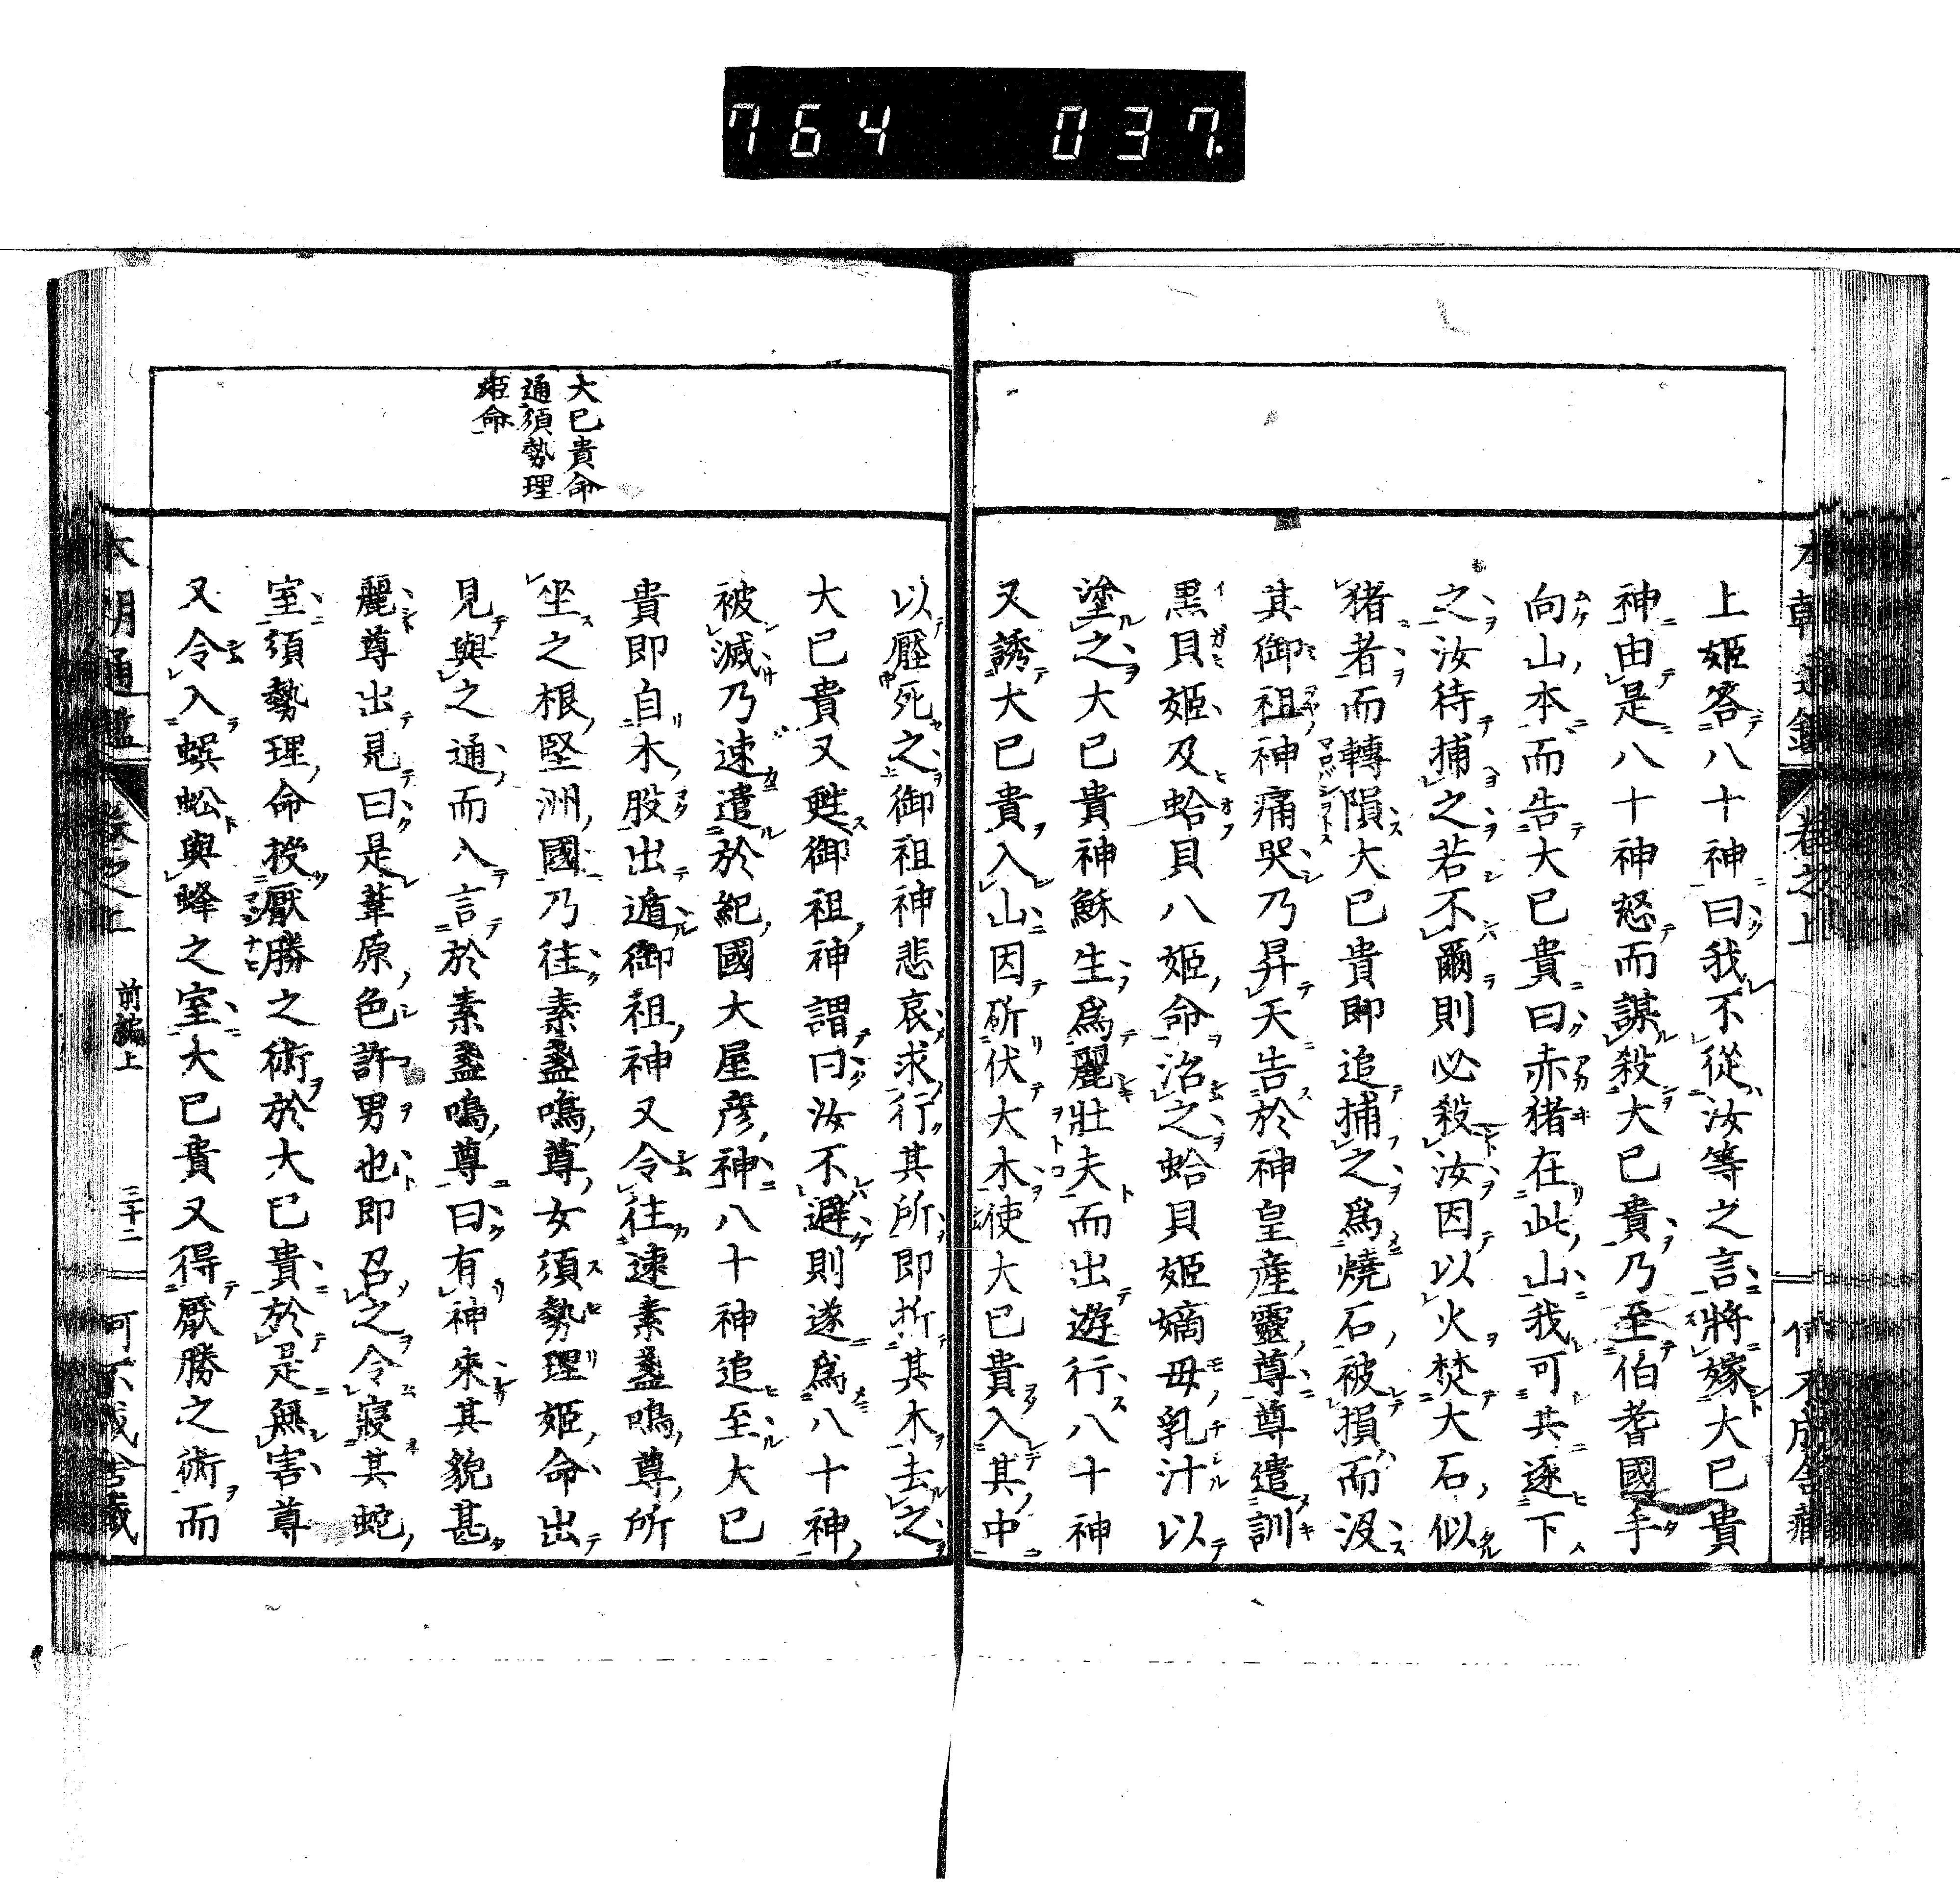 764 037.
本朝通鑑 卷之上
何不成舍藏
上姬答八十神曰我不從汝等之言將嫁大已貴
神由是八十神怒而謀殺大已貴乃至伯耆國手
向山本而告大已貴曰赤猪在此山我可共逐下
之汝待捕之若不爾則必殺汝因以火焚大石似
猪者而轉隕大已貴即追捕之爲燒石被損而沒
其御祖神痛哭乃昇天告於神皇產靈尊尊遣訓
黒貝姬及蛤貝八姬命治之蛤貝姬嫡母乳汁以
塗之大已貴神穌生爲麗壯夫而出遊行八十神
又誘大已貴入山因斫伏大木使大已貴入其中
大已貴命
通須勢理
姬命
以壓死之御祖神悲哀求行其所即折其木去之
大已貴又甦御祖神謂曰汝不避則遂爲八十神
被滅乃速遣於紀國大屋彦神八十神追至大已
貴即自木股出遁御祖神又令往速素盞鳴尊所
坐之根堅洲國乃往素盞鳴尊女須勢理姬命出
見與之通而入言於素盞鳴尊曰有神來其貌甚
麗尊出見曰是葦原色許男也即召之令寢其蛇
室須勢理命授厭勝之術於大已貴於是無害尊
又令入蜈蚣與蜂之室大已貴又得厭勝之術而
本朝通鑑 卷之上 前編上 三十二 何不成舍藏